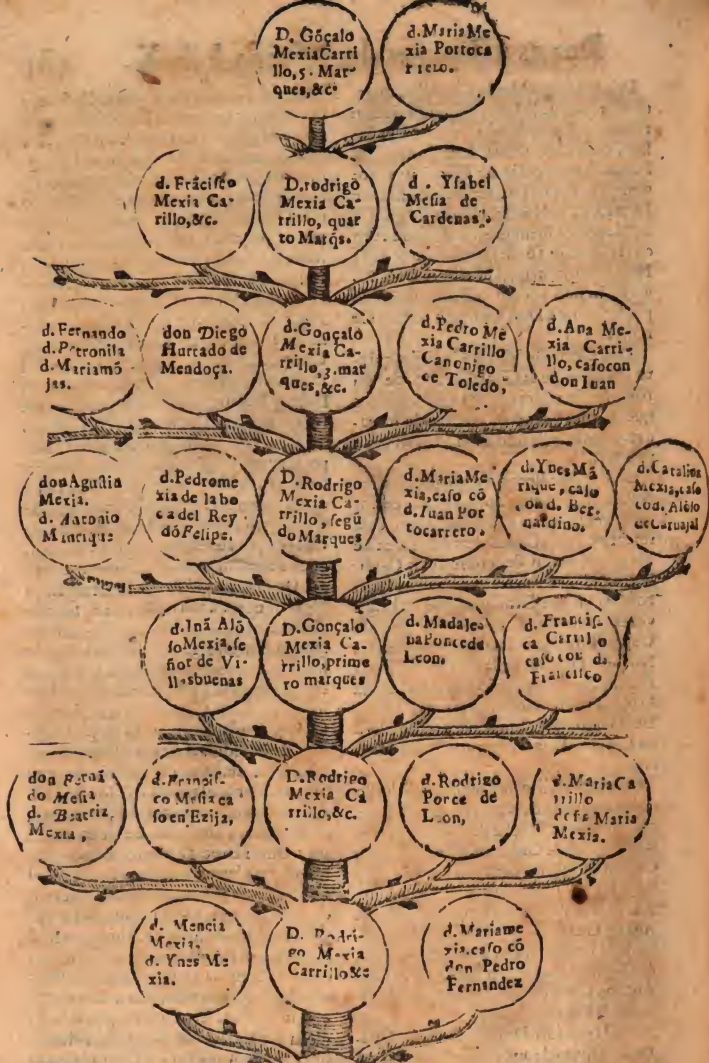 D. Gõçalo
MexiaCarri
llo, 5. Mar-
ques, &c.
d. Maria Me
xia Portoca
rrero.
d. Frãcisco
Mexia Ca-
rillo, &c.
D. rodrigo
Mexia Ca-
rrillo, quar
to Marq̃s.
d. Ysabel
Mesia de
Cardenas.
d. Fernando
d. Petronila
d. Mariamõ
jas.
don Diego
Hurtado de
Mendoça.
d. Gonçalo
Mexia Ca-
rrillo, 3. mar
ques, &c.
d. Pedro Me
xia Carrillo
Canonigo
de Toledo,
d. Ana Me-
xia Carri-
llo, caso con
don Iuan
don Agustin
Mexia.
d. Antonio
Manrique
d. Pedrome
xia de la bo
ca del Rey
dõ Felipe.
D. Rodrigo
Mexia Ca-
rrillo, segũ
do Marques
d. Maria Me-
xia, caso cõ
d. Iuan Por
tocarrero.
d. Ynes Mã
rique, caso
con d. Ber-
nardino.
d. Catalina
Mexia, caso
cõ d. Alõso
de Carvajal
d. Iuã Alõ
so Mexia, se
ñor de Vi-
llasbuenas
D. Gonçalo
Mexia Ca-
rrillo, prime
ro marques
d. Madale-
na Ponce de
Leon.
d. Francis-
ca Carrillo
caso con d.
Francisco
don Fernã
do Mesia.
d. Beatriz
Mexia,
d. Francis-
co Mesia ca
so en Ezija,
D. Rodrigo
Mexia Ca
rrillo, &c.
d. Rodrigo
Ponce de
Leon,
d. Maria Ca
rrillo
Maria
Mexia.
d. Mencia
Mexia.
d. Ynes Me
xia.
D. Rodri-
go Mexia
Carrillo &c
d. Mariame
xia, caso cõ
don Pedro
Fernandez